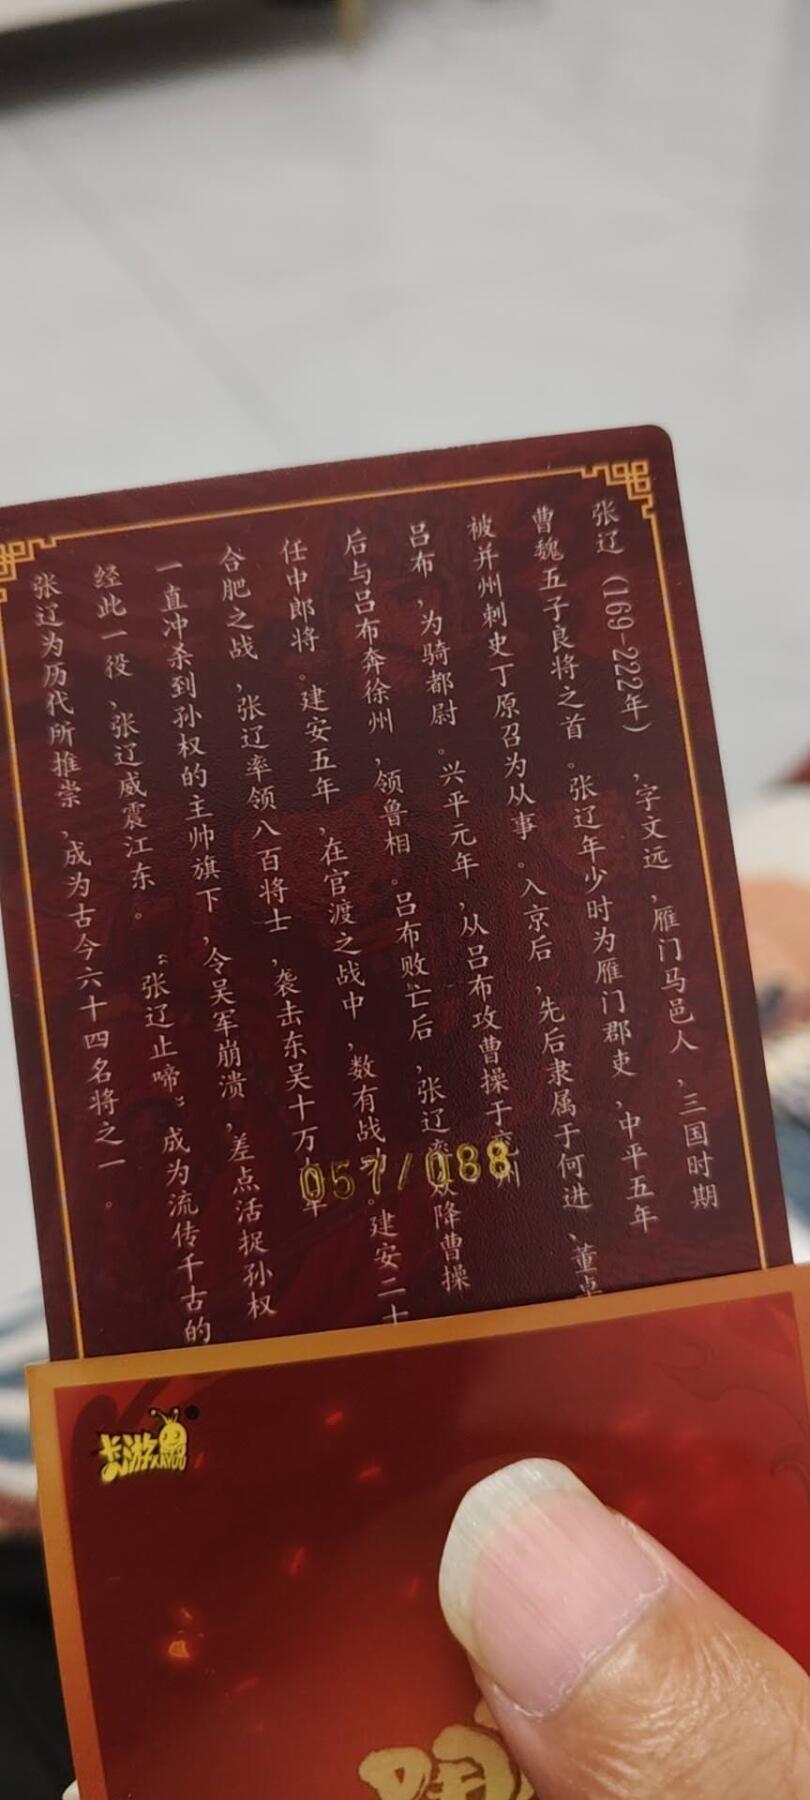 张辽（169-222年），字文远，雁门马邑人，三国时期
曹魏五子良将之首。张辽年少时为雁门郡吏，中平五年
被并州刺史丁原召为从事。入京后，先后隶属于何进、董卓
吕布，为骑都尉。兴平元年，从吕布攻曹操于 州
后与吕布奔徐州，领鲁相。吕布败亡后，张辽 降曹操
任中郎将。建安五年，在官渡之战中，数有战 。建安二十
合肥之战，张辽率领八百将士，袭击东吴十万
一直冲杀到孙权的主帅旗下，令吴军崩溃，差点活捉孙权
经此一役，张辽威震江东。“张辽止啼”成为流传千古的
张辽为历代所推崇，成为古今六十四名将之一。
057/088
卡游
KAYOU